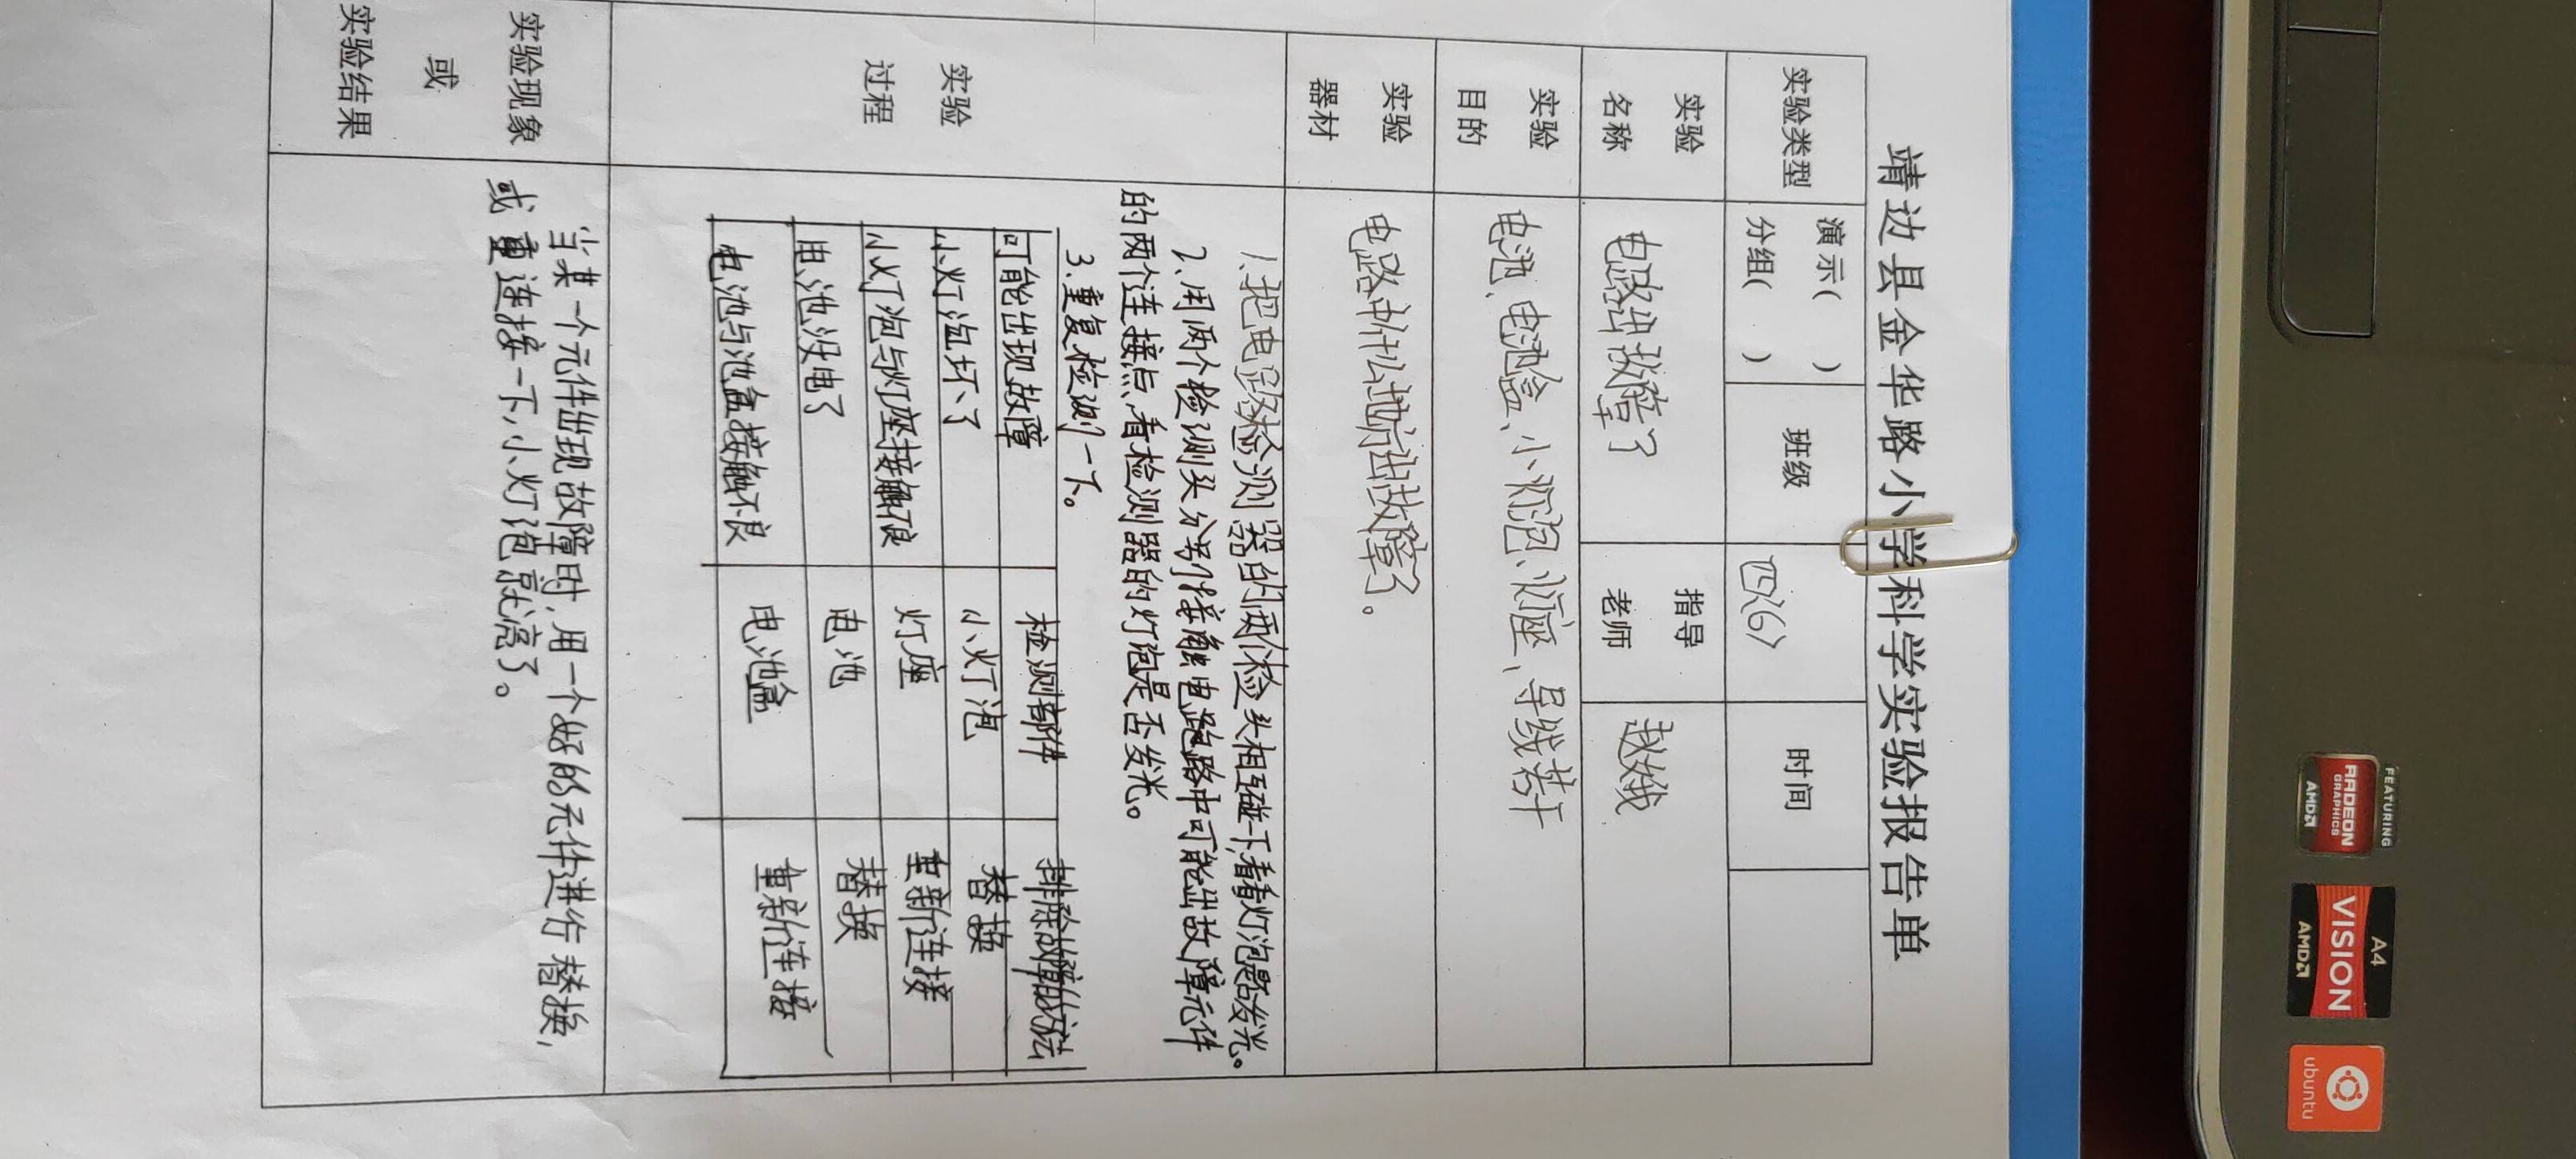 靖边县金华路小学科学实验报告单
实验类型 演示( ) 分组( ) 班级 四(6) 时间
实验名称 电路出故障了 指导老师 赵娥
实验目的 电池、电池盒、小灯泡、灯座、导线若干
实验器材 电路中什么地方出故障了。
实验过程
1、把电路检测器的两个检头相互碰一下,看看灯泡是否发光。
2、用两个检测头分别接触电路中可能出故障元件
的两个连接点,看检测器的灯泡是否发光。
3、重复检测一下。
可能出现故障 检测部件 排除故障的方法
小灯泡坏了 小灯泡 替换
小灯泡与灯座接触不良 灯座 重新连接
电池没电了 电池 替换
电池与池盒接触不良 电池盒 重新连接
实验现象或实验结果
当某一个元件出现故障时,用一个好的元件进行替换,
或重连接一下,小灯泡就亮了。
FEATURING
RADEON
GRAPHICS
AMD
A4
VISION
AMD
ubuntu